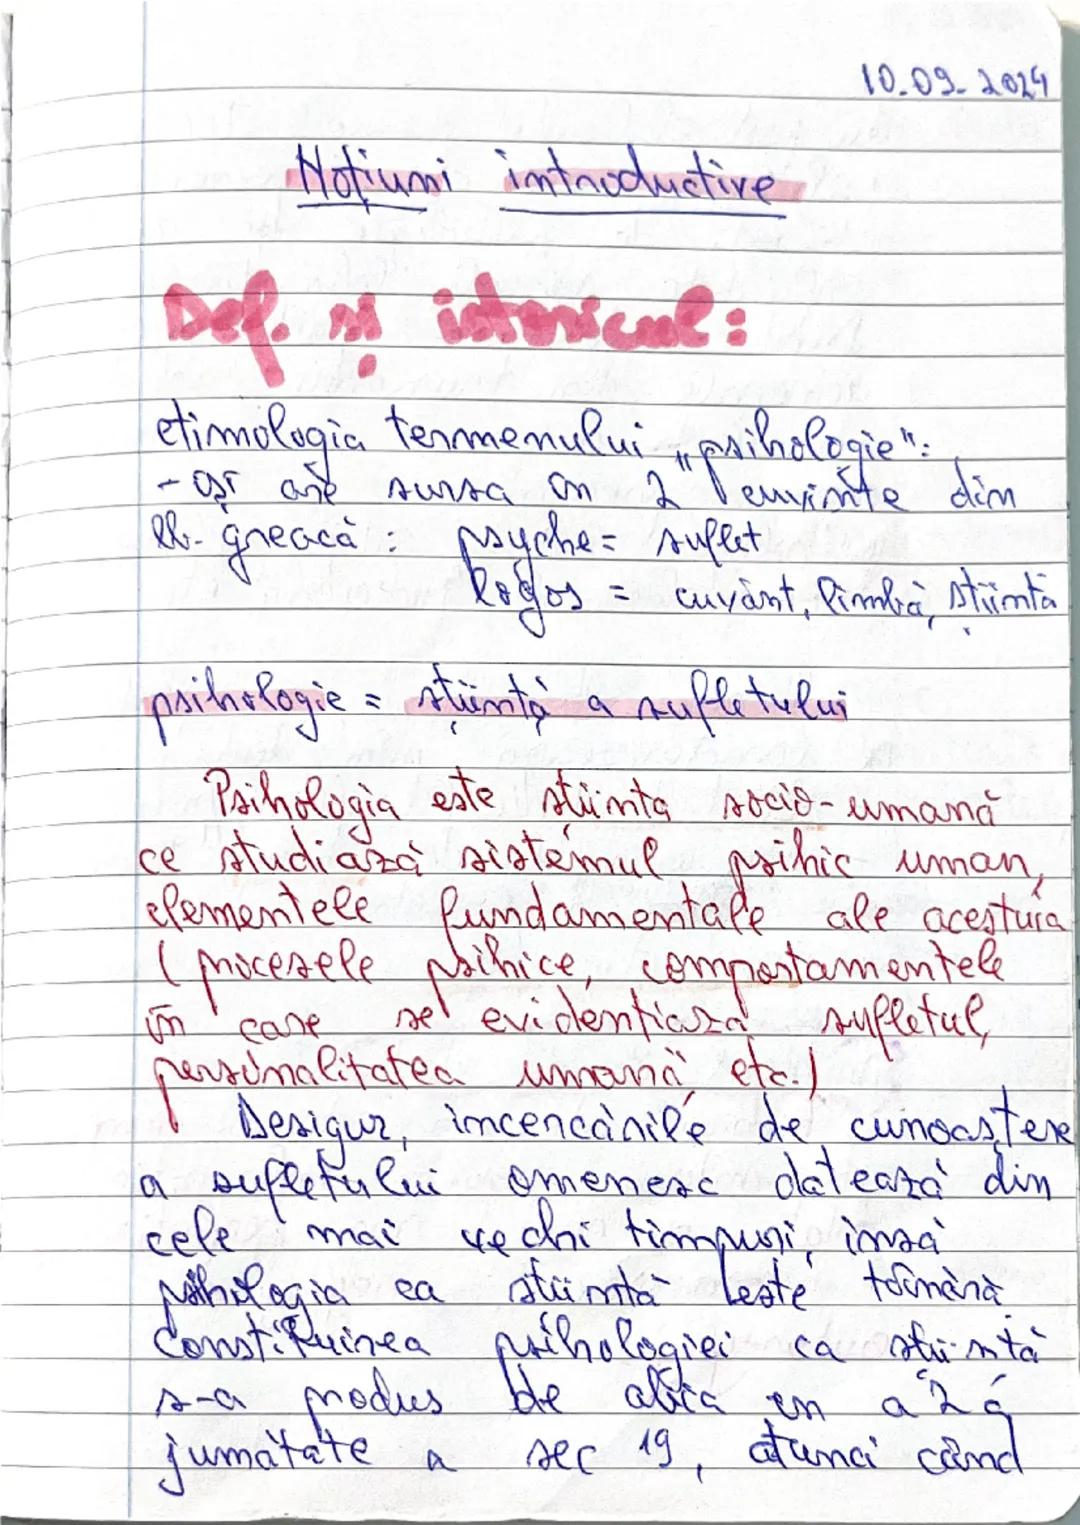 10.09.2024
Noțiuni introductive
Def. și istoricul:
etimologia termenului „psihologie":
- își are sursa în 2 cuvinte din
lb. greacă : psyche = suflet
logos = cuvânt, limbă, știință
psihologie = știință a sufletului
Psihologia este știința socio-umană
ce studiază sistemul psihic uman,
elementele fundamentale ale acestuia
( procesele psihice, comportamentele
în care se evidențiază sufletul,
personalitatea umană, etc.)
Desigur, încercările de cunoaștere
a sufletului omenesc datează din
cele mai vechi timpuri, însă
psihologia ca știință este tânără
Constituirea psihologiei ca știință
s-a produs de abia în a 2 a
jumătate a sec 19, atunci când